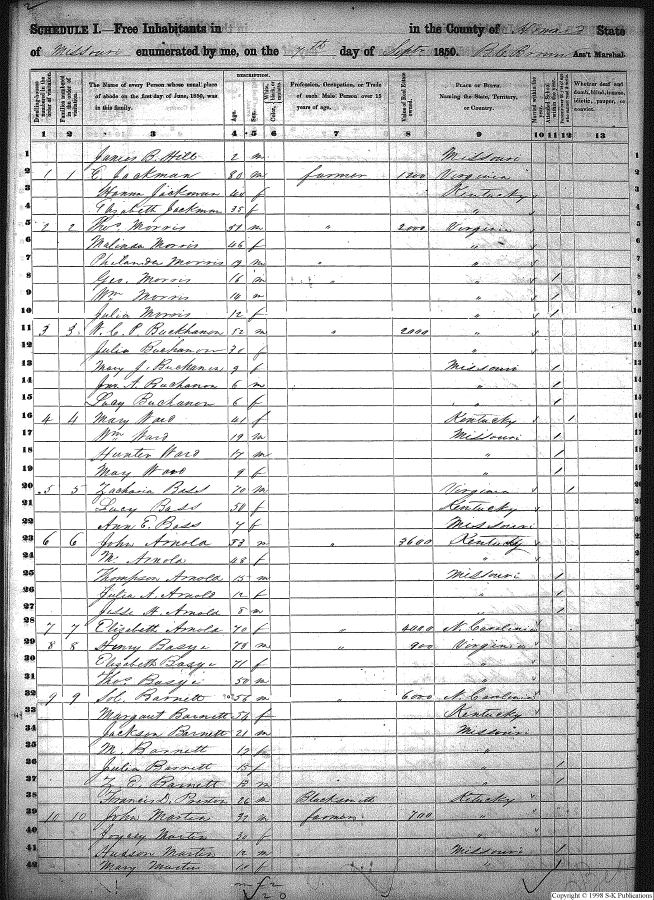 SCHEDULE I.—Free Inhabitants in in the County of Howard State
of Missouri enumerated by me, on the 7th day of Sept 1850. Ass't Marshal.
Dwelling-houses numbered in the order of visitation.
Families numbered in the order of visitation.
The Name of every Person whose usual place of abode on the first day of June, 1850, was in this family.
DESCRIPTION.
Age.
Sex.
Color,
Profession, Occupation, or Trade of each Male Person over 15 years of age.
Value of Real Estate owned.
PLACE OF BIRTH. Naming the State, Territory, or Country.
Married within the year.
Whether deaf and dumb, blind, insane, idiotic, pauper, or convict.
1 2 3 4 5 6 7 8 9 10 11 12 13
1 James B. Hill 2 m Missouri 1
2 1 1 C. Jackman 80 m farmer 1200 Virginia 2
3 Jackman 40 f Kentucky 3
4 Elizabeth Jackman 35 f " 4
5 2 2 Thos Morris 51 m " 2000 Virginia 5
6 Malinda Morris 46 f " 6
7 Philander Morris 19 m " " 7
8 Geo. Morris 16 m " " 1 8
9 Wm Morris 14 m " 1 9
10 Julia Morris 12 f " 1 10
11 3 3 W. C. P. Buckhanon 52 m " 2000 " 11
12 Julia Buchanon f " 12
13 Mary J. Buchanan 9 f Missouri 1 13
14 Jno A. Buchanon 6 m " 1 14
15 Lucy Buchanon 6 f " 1 15
16 4 4 Mary Ward 41 f Kentucky 1 16
17 Wm Ward 19 m Missouri 1 17
18 Hunter Ward 17 m " 1 18
19 May Ward 9 f " 1 19
20 5 5 Zacharia Bass 70 m Virginia 1 20
21 Lucy Bass 50 f Kentucky 21
22 Ann E. Bass 7 f Missouri 22
23 6 6 John Arnold 53 m " 3600 Kentucky 23
24 M. Arnold 48 f " 24
25 Thompson Arnold 15 m Missouri 1 25
26 Julia A. Arnold 12 f " 1 26
27 Jesse H. Arnold 8 m " 1 27
28 7 7 Elizabeth Arnold 70 f " 4000 N. Carolina 28
29 8 8 Henry Basye 73 m " 900 Virginia 29
30 Elizabeth Basye 71 f " 30
31 Thos Basye 50 m " 31
32 9 9 Sol. Barnett 56 m " 6000 N. Carolina 32
33 Margaret Barnett 54 f Kentucky 33
34 Jackson Barnett 21 m Missouri 34
35 M. Barnett 17 f " 35
36 Julia Barnett 15 f " 1 36
37 Z. E. Barnett m " 1 37
38 Francis D. 26 m Blacksmith Ketucky 38
39 10 10 John Martin 32 m farmer 700 " 39
40 Martin 30 f " 40
41 Hudson Martin 12 m Missouri 1 41
42 Mary Martin 10 f " 1 42
Copyright © 1998 S-K Publications